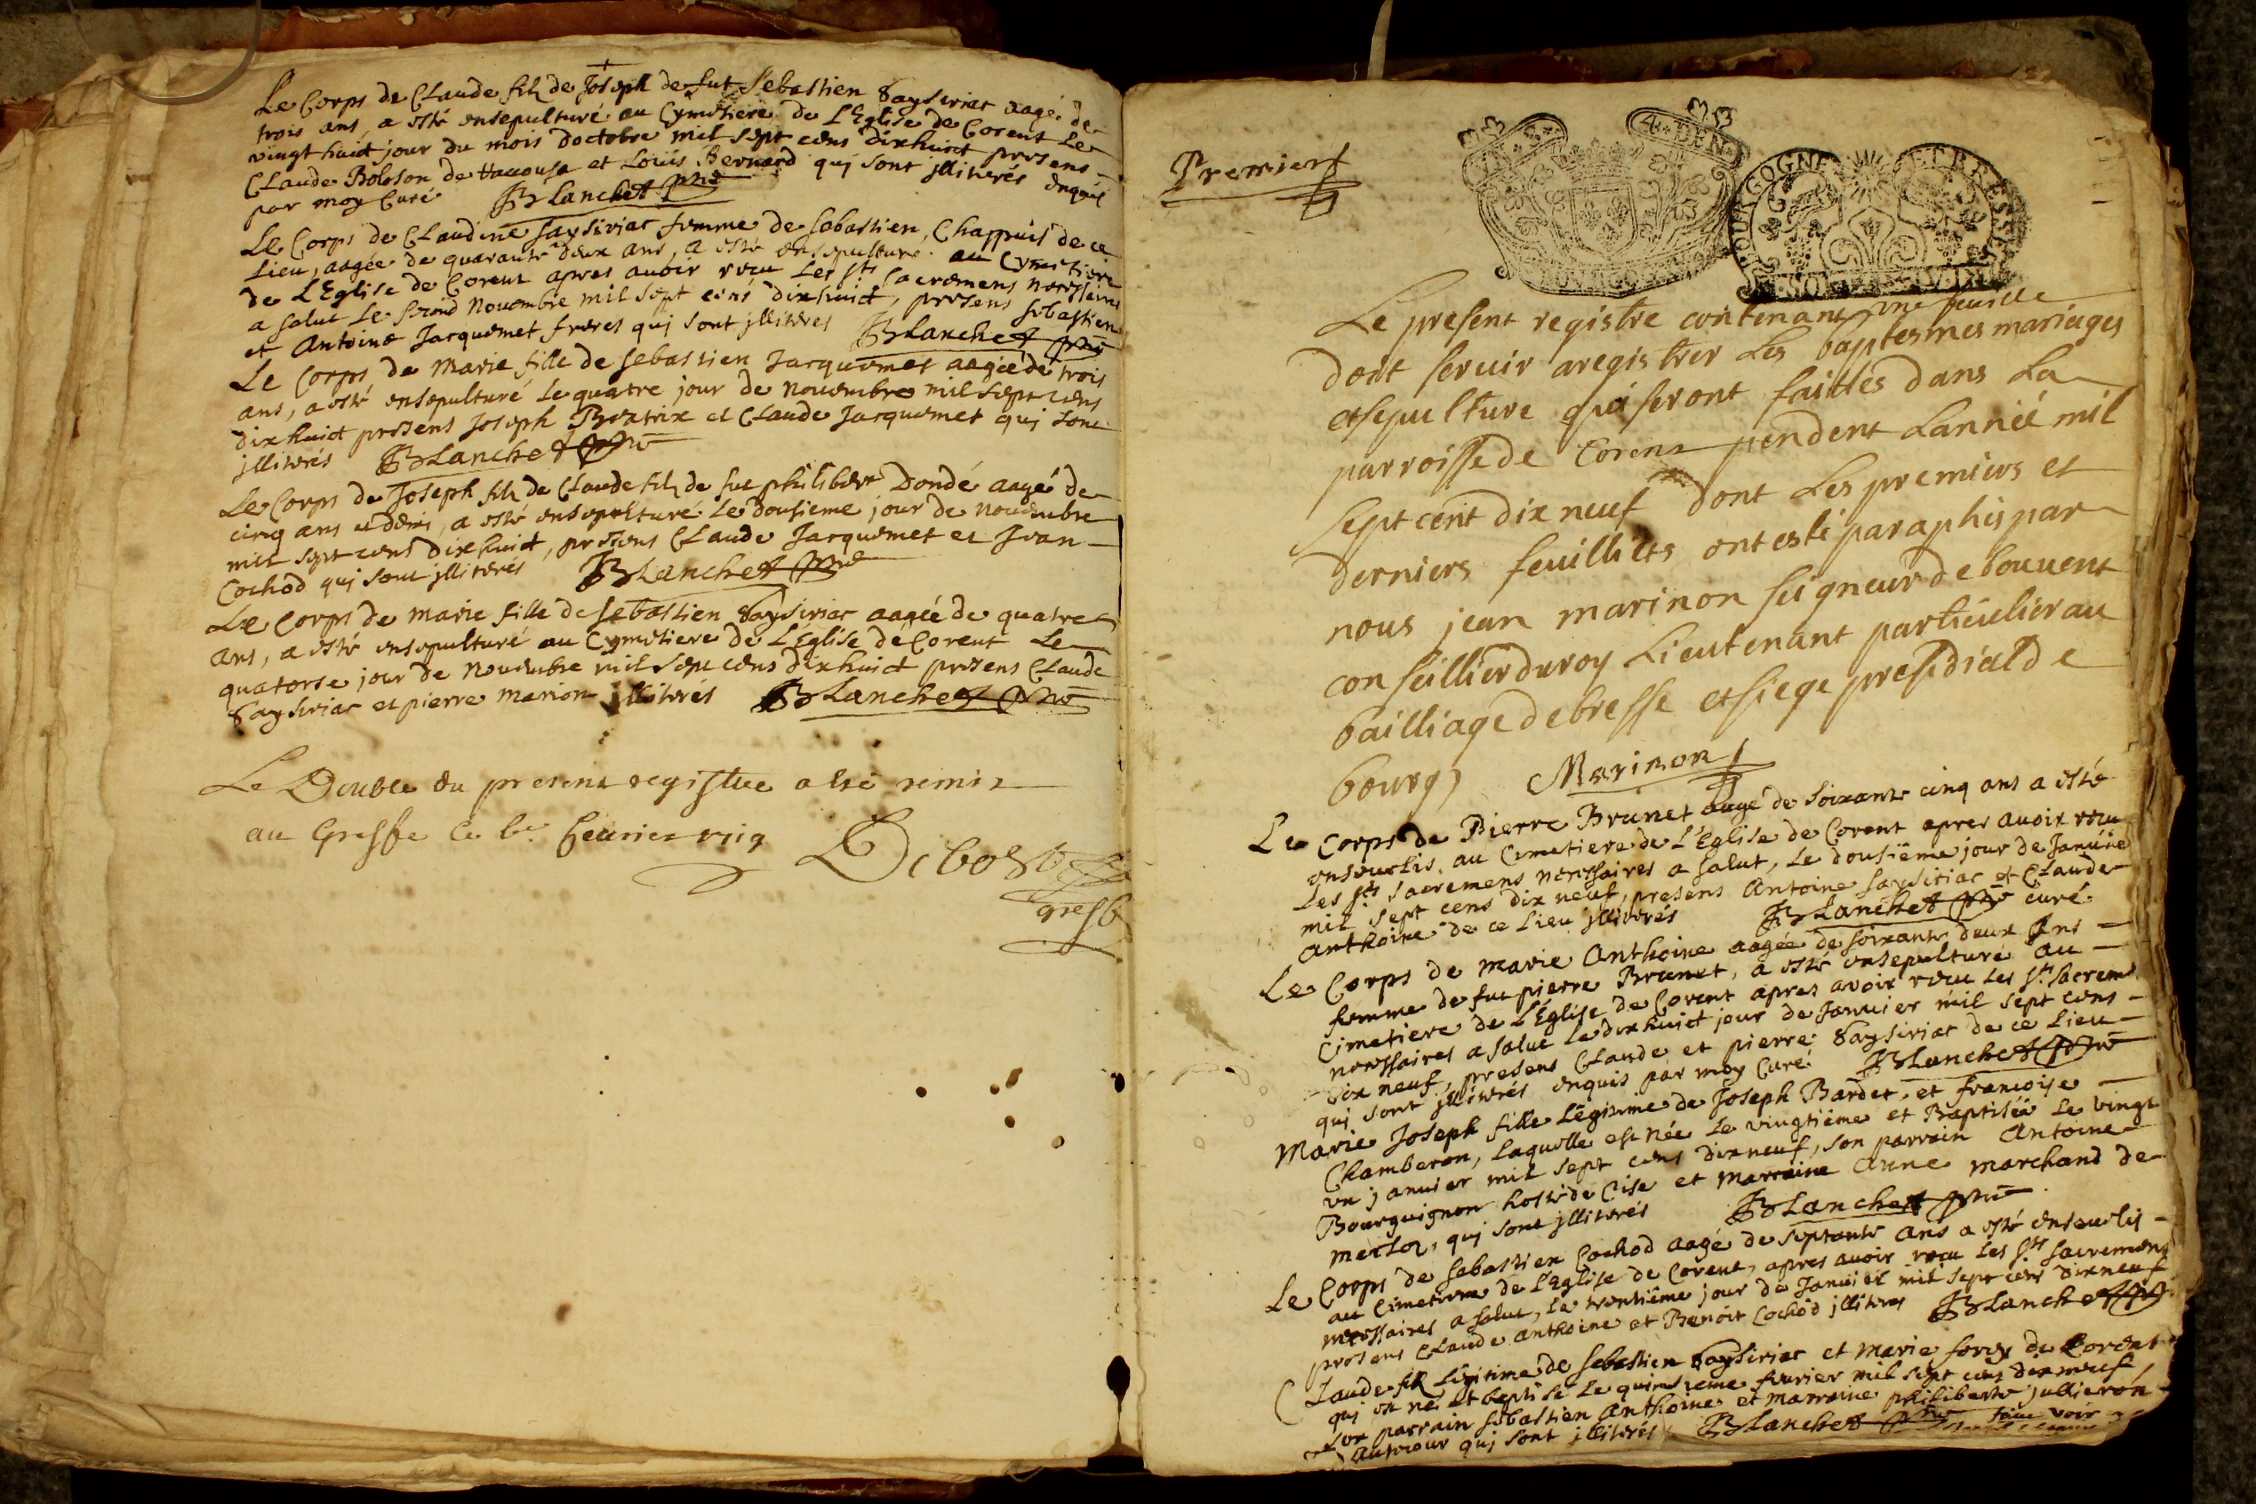 Le Corps de Claude filz de Joseph de fut Sebastien Saysiriat aagé de
trois ans, a esté ensepulturé au Cymetiere de L'Eglise de Corent Le
vingt huict jour du mois doctobre mil sept cens dixhuict presens
Claude Boloson de et Louis Bernard qui sont jlliterés enquis
par moy Curé Blanchet
Le Corps de Claudine Saysiriat femme de Sebastien Chappuis de ce
Lieu, aagée de quarante deux ans, a esté ensepulturé au Cymetiere
de L'Eglise de Corent apres auoir receu Les sts sacremens necessaires
a salut Le second Nouembre mil sept cens dixhuict, presens Sebastien
et Antoine Jacquemet freres qui sont jlliterés Blanchet
Le Corps de Marie fille de Sebastien Jacquemet aagée de trois
ans, a esté ensepulturé Le quatre jour de nouembre mil sept cens
dixhuict presens Joseph Beatrix et Claude Jacquemet qui sont
jlliterés Blanchet
Le Corps de Joseph filz de Claude filz de fut philibert Dondé aagé de
cinq ans et demi, a esté ensepulturé Le dousieme jour de nouembre
mil sept cens dixhuict, presens Claude Jacquemet et Jean
Cochod qui sont jlliterés Blanchet
Le Corps de marie fille de Sebastien Saysiriat aagée de quatre
ans, a esté ensepulturé au Cymetiere de L'Eglise de Corent Le
quatorse jour de Nouembre mil sept cens dixhuict presens Claude
Saysiriat et pierre marion jlliterés Blanchet
Le Double du present registre a esté remis
au Greffe Ce feurier 1719
Debost
greff
Premier
4 DEN
BOURGOGNE ET BRESSE
Le present registre contenant une feuille
doit seruir aregistrer Les baptesmes mariages
et sepulture qui seront faittes dans La
parroisse de Corent pendent Lannée mil
sept cent dix neuf dont Les premiers et
derniers feuillets ont esté paraphés par
nous jean marinon seigneur de bouuent
conseillier du roy Lieutenant particulier au
bailliage de bresse et siege presidial de
bourg Marinon
Le Corps de Pierre Brunet aagé de soixante cinq ans a esté
enseueli, au Cimetiere de L'Eglise de Corent apres auoir receu
Les sts sacremens necessaires a salut, Le dousiême jour de Januier
mil sept cens dix neuf, presens Antoine Saysiriat et Claude
Anthoine de ce Lieu jlliterés Blanchet curé
Le Corps de marie Anthoine aagée de soixante deux ans
femme de fut pierre Brunet, a esté ensepulturé au
Cimetiere de L'Eglise de Corent apres avoir receu Les sts sacremens
necessaires a salut Le dixhuict jour de Januier mil sept cens
dix neuf, presens Claude et pierre Saysiriat de ce Lieu
qui sont jlliterés enquis par moy Curé Blanchet
Marie Joseph fille Legitime de Joseph Bardet, et francoise
Chamberon, Laquelle est Née Le vingtiême et Baptisée Le vingt
vn januier mil sept cens dixneuf, son parrain Antoine
Bourguignon hoste de Cise et Marraine Anne marchand de
qui sont jlliterés Blanchet
Le Corps de Sebastien Cochod aagé de septante ans a esté enseueli
au Cimetiere de L'Eglise de Corent, apres auoir receu Les sts sacremens
necessaires a salut, Le trentiême jour de Januier mil sept cens dixneuf
presens Claude anthoine et Benoit Cochod jlliteres Blanchet
Claude filz Légitime de Sebastien Saysiriat et Marie de Corent
qui est né et baptisé Le quinsieme feurier mil sept cens dixneuf,
son parrain Sebastien Anthoine et marraine philiberte jullieron
qui sont jlliterés Blanchet